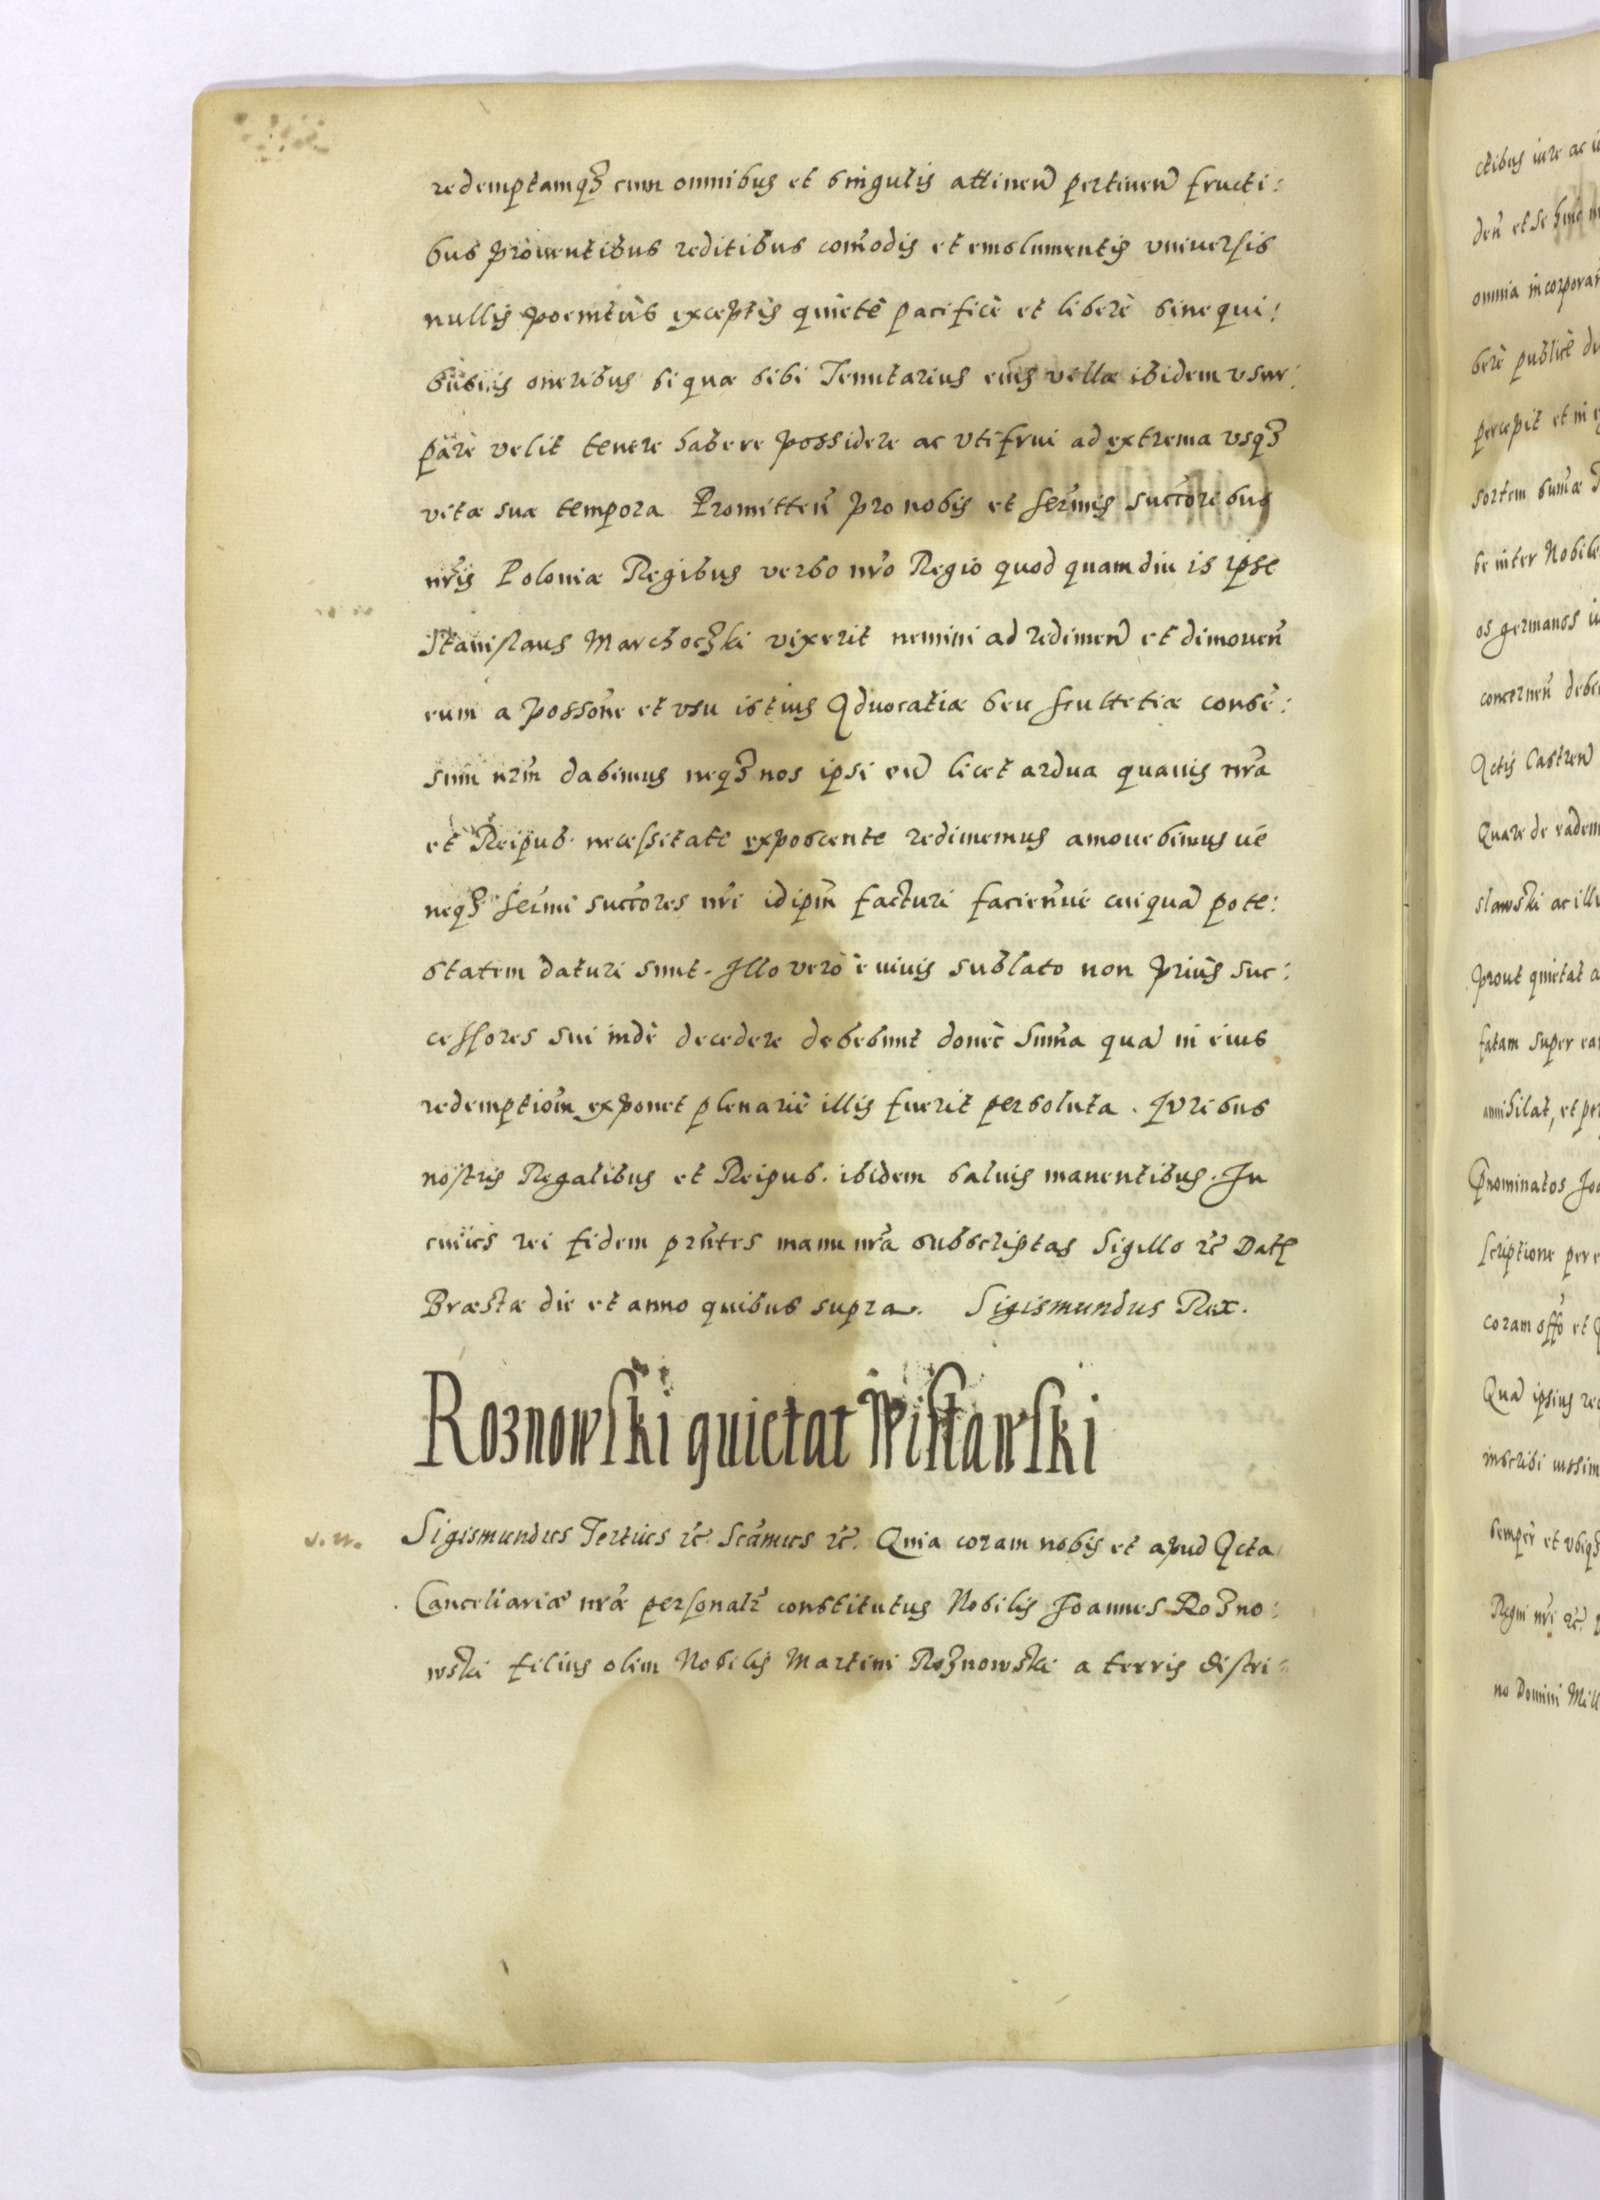 redemptamqȝ cum omnibus et singulis attinen̄ pertinen̄ fructi:
bus prouentibus reditibus com̃odis et emolumentis vniuersis
nullis poenitùs exceptis quietè pacificè et liberè sine qui:
busuis oneribus si quæ sibi Tenutarius eius villæ ibidem vsur:
pare velit tenere habere possidere ac vtifrui ad extrema vsqȝ
vitæ suæ tempora Promitten̄ pro nobis et ser̃mis succ̃oribus
nr̃is Poloniæ Regibus verbo nr̃o Regio quod quamdiu is ipse
Stanislaus Marchoczki vixerit nemini ad redimen̄ et dimouen̄
eum a posso̅ne et vsu istius Aduocatiæ seu scultetiæ conse͂:
sum nr̃m dabimus neqȝ nos ipsi eū licet ardua quauis nr̃a
et Reipub. necessitate exposcente redimemus amouebimus ué
neqȝ ser̃mi succ̃ores nr̃i idip̃m facturi facien̄ué cuiquā pote:
statem daturi sunt. Illo verò è viuis sublato non priùs suc:
cessores sui indè decedere debebunt donec̀ sum̃a quā in eius
redemptiom̃ exponet plenariè illis fuerit persoluta. Iuribus
nostris Regalibus et Reipub. ibidem saluis manentibus. In
cuius rei fidem prn̄tes manu nr̃a subscriptas Sigillo ꝛc̃ Datꝭ
Bræstæ die et anno quibus supra. Sigismundus Rex.
Roznowski quietat Wislawski
Sigismundus Tertius ꝛc̃. Sc̃amus ꝛc̃. Quia coram nobis et apud Acta
Cancellariæ nr̃æ personalr̃ constitutus Nobilis Joannes Rozno:
wski filius olim Nobilis Martini Roznowski a terris distri:
ctibus iure ac
den̄ et se
omnia incorporan
berè publicè
percepit et in
sortem sum̃æ
se inter Nobile
os germanos
concernen̄
Actis Castren̄
Quare de eadem
slawski ac
prout quietat a
fatam super
annihilat, et
Joa
scriptione per
coram off̃o et
Quā ipsius
inscribi
semper et vbiqȝ
Regni nr̃i ꝛc̃.
no Domini